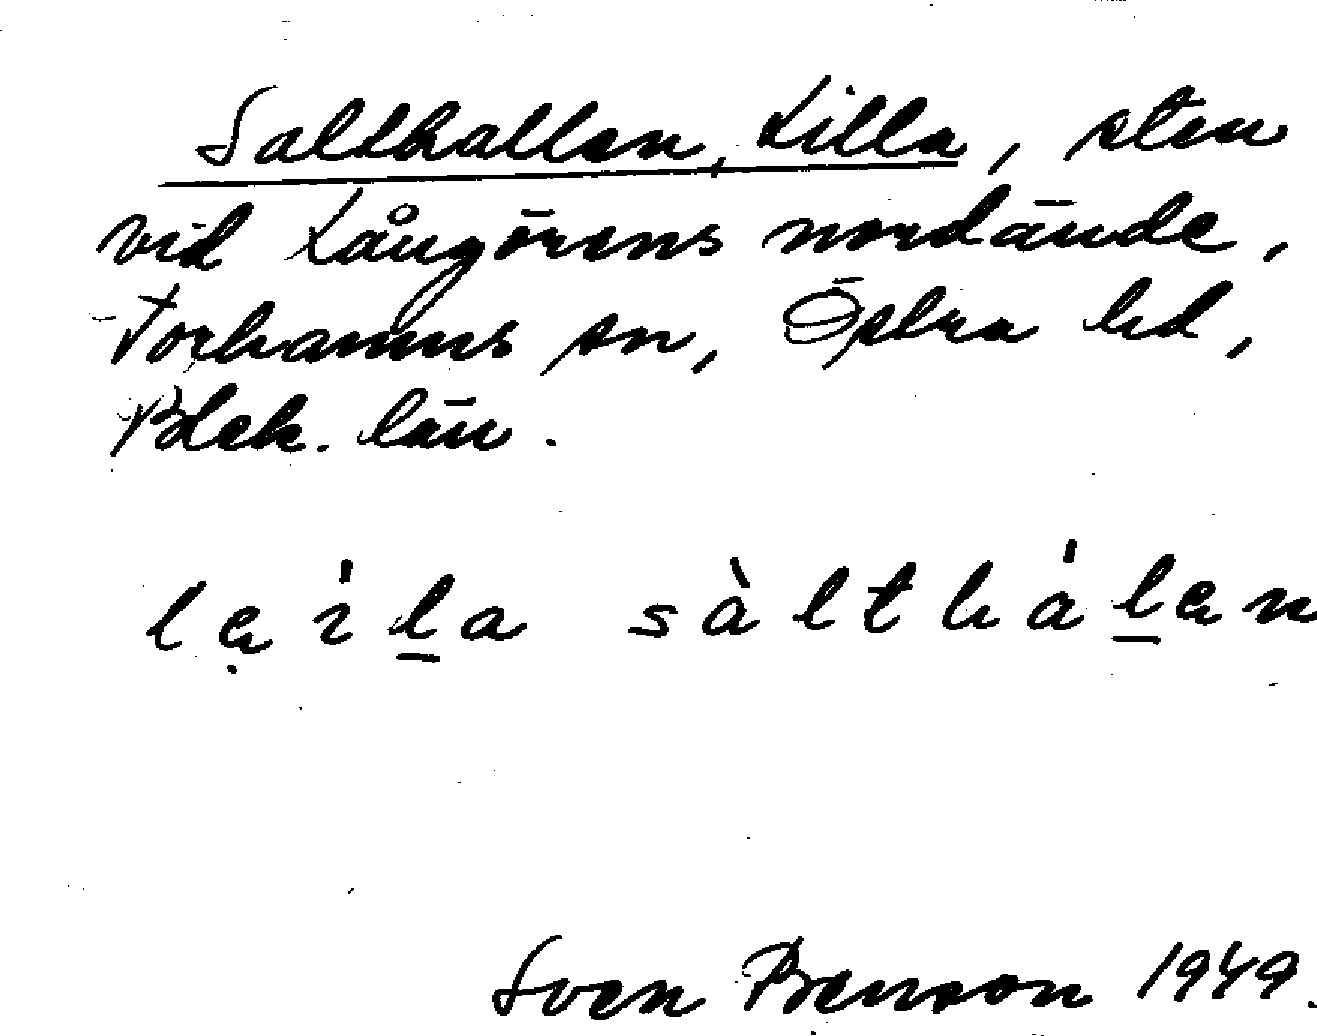 Salthallen, Lilla, sten
vid Långörens nordände,
Torhamns sn, Östra hd,
Blek. län.
lạìl̲a sàlthál̲ạn
Sven Benson 1949.